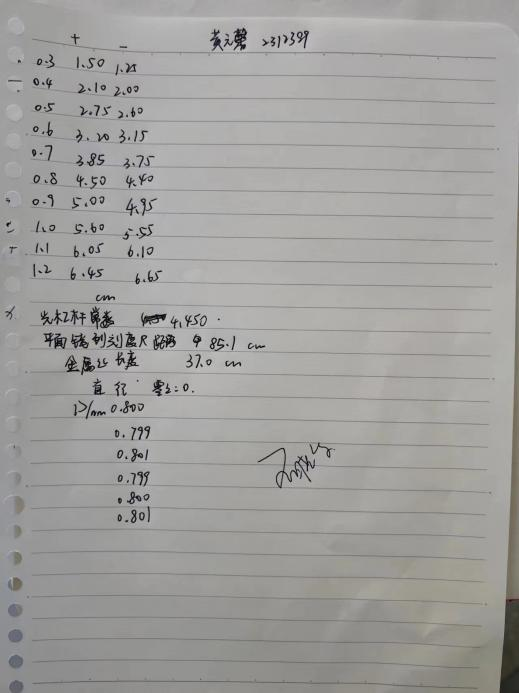 + - 黄元馨 2312399
0.3 1.50 1.25
0.4 2.10 2.00
0.5 2.75 2.60
0.6 3.20 3.15
0.7 3.85 3.75
0.8 4.50 4.40
0.9 5.00 4.95
1.0 5.60 5.55
1.1 6.05 6.10
1.2 6.45 6.65
cm
光杠杆常数 4.450
平面镜到刻度尺 85.1 cm
金属丝长度 37.0 cm
直径 零点:0.
D/mm 0.800
0.799
0.801
0.799
0.800
0.801